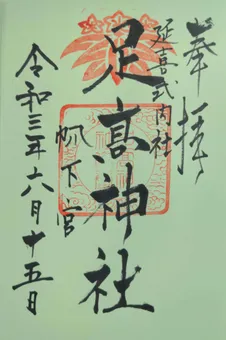 奉拝
延喜式内社
足髙神社
帆下げ宮
令和三年六月十五日